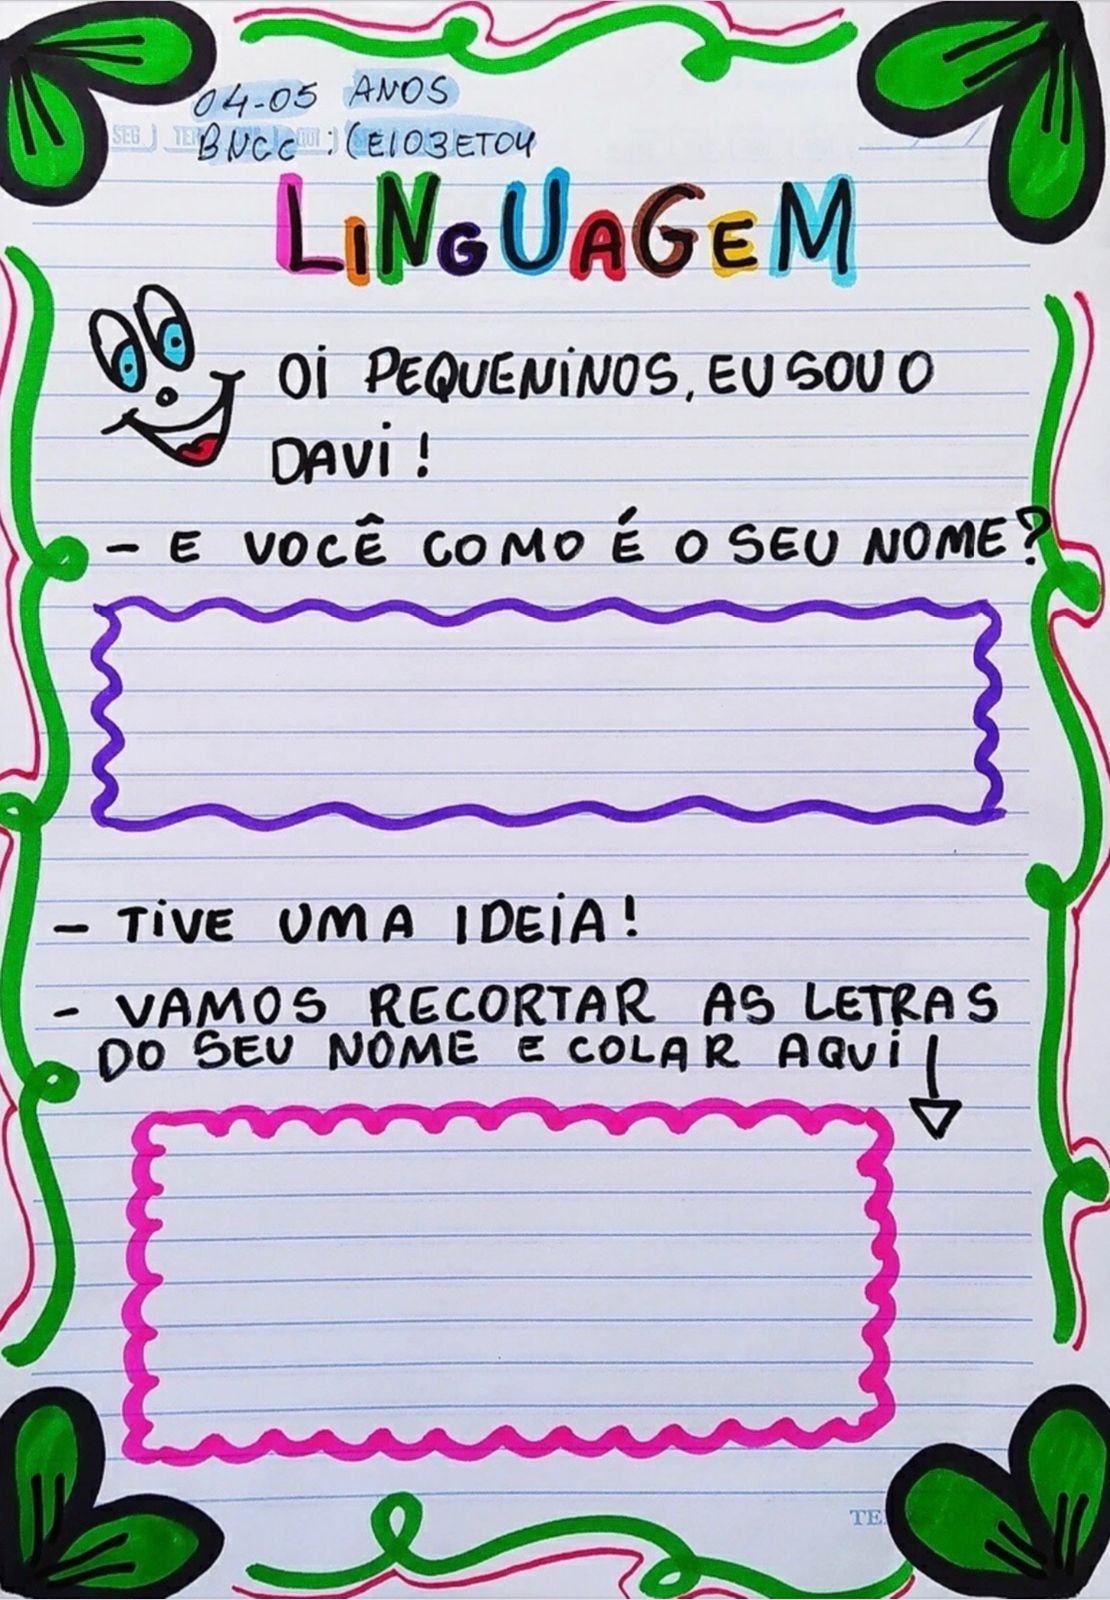 04-05 ANOS
SEG
BNCC : (EI03ET04
LINGUAGEM
OI PEQUENINOS, EU SOU O
DAVI!
- E VOCÊ COMO É O SEU NOME?
- TIVE UMA IDEIA!
- VAMOS RECORTAR AS LETRAS
DO SEU NOME E COLAR AQUI